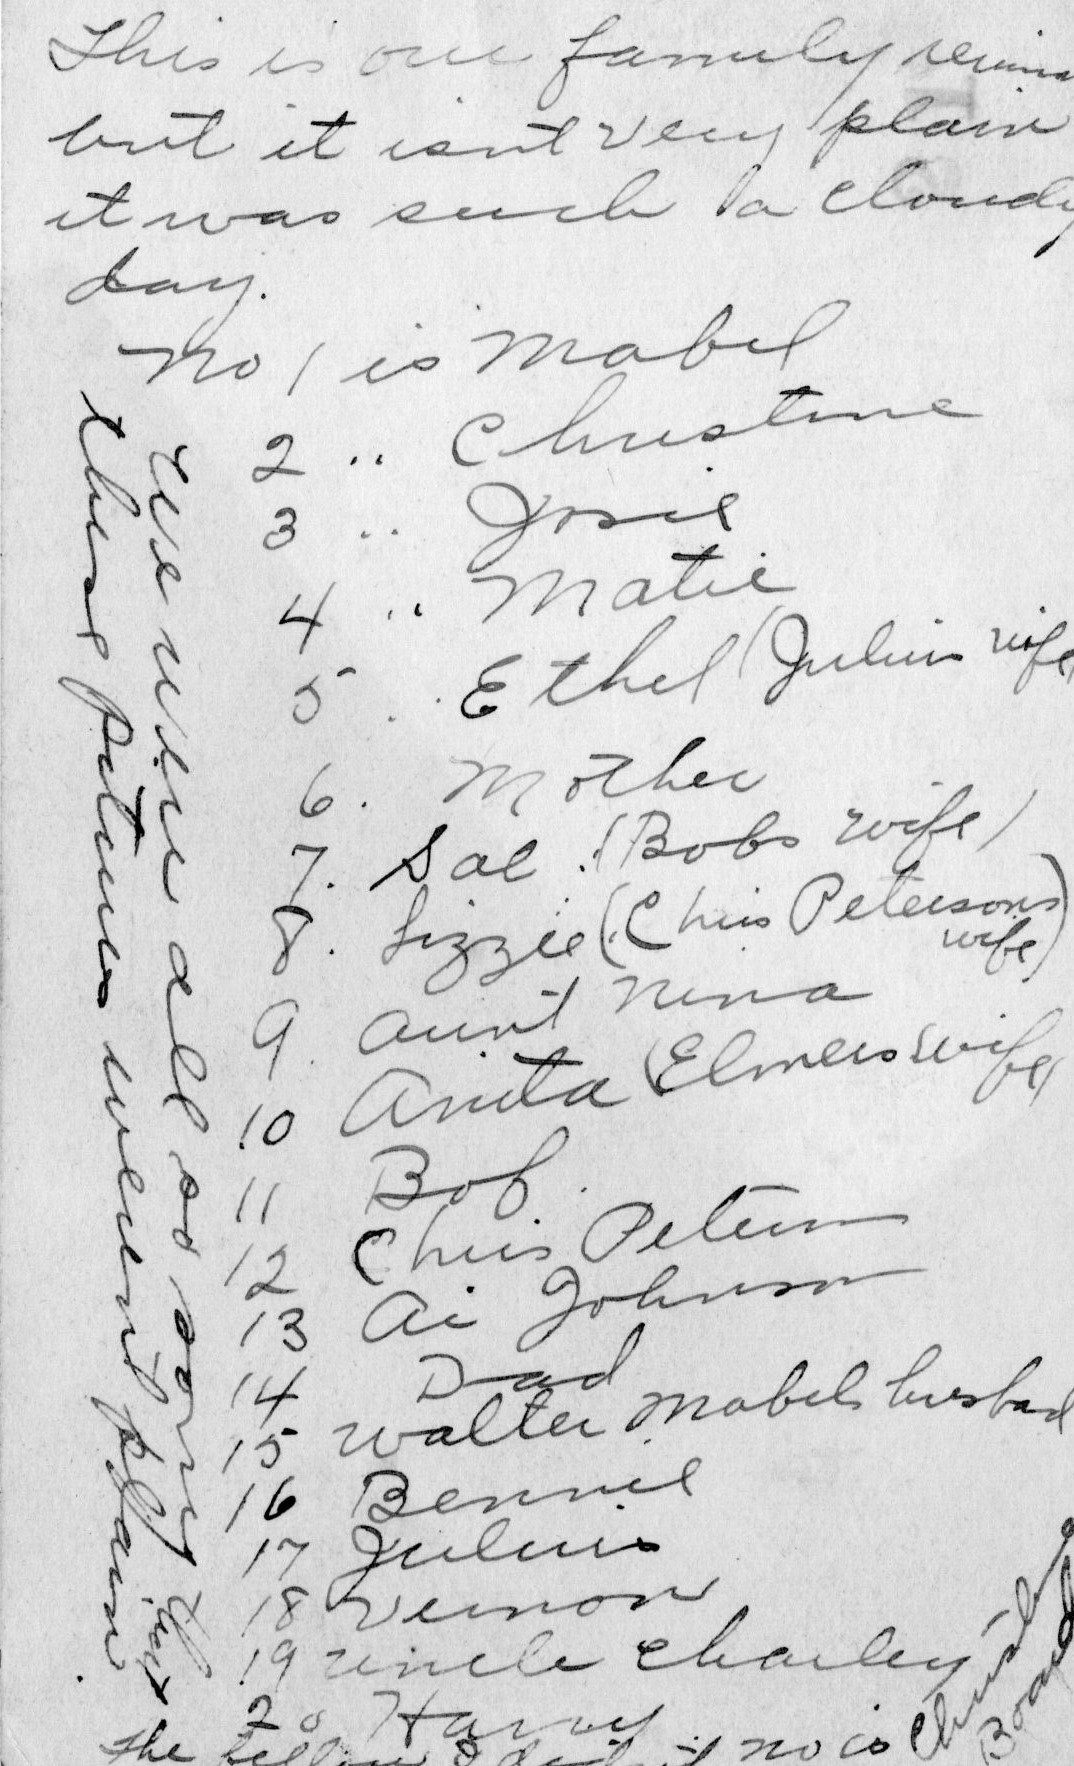 This is our family
but it isnt very plain
it was such a cloudy
day.
No 1 is Mabel
2 " Christine
3 " Josie
4 " Matie
5 " Ethel (Julius wife)
6. Mother
7. Sal (Bobs wife)
8. Lizzie (Chris Petersons
wife)
9. Aunt Nina
10 Anita (Elmers wife)
11 Bob.
12 Chris Peterson
13 Ai Johnson
14 Dad
15 Walter Mabels husband
16 Bennie
17 Julius
18 Vernon
19 uncle Charley
20 Harry
The fellow no is
Board
We were all so sorry that
these pictures werent plain.